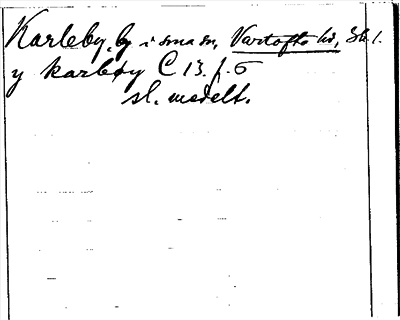 Karleby, by i sma sn, Vartofta hd, Sk. l.
y karleby C 13. f. 6
sl. medelt.